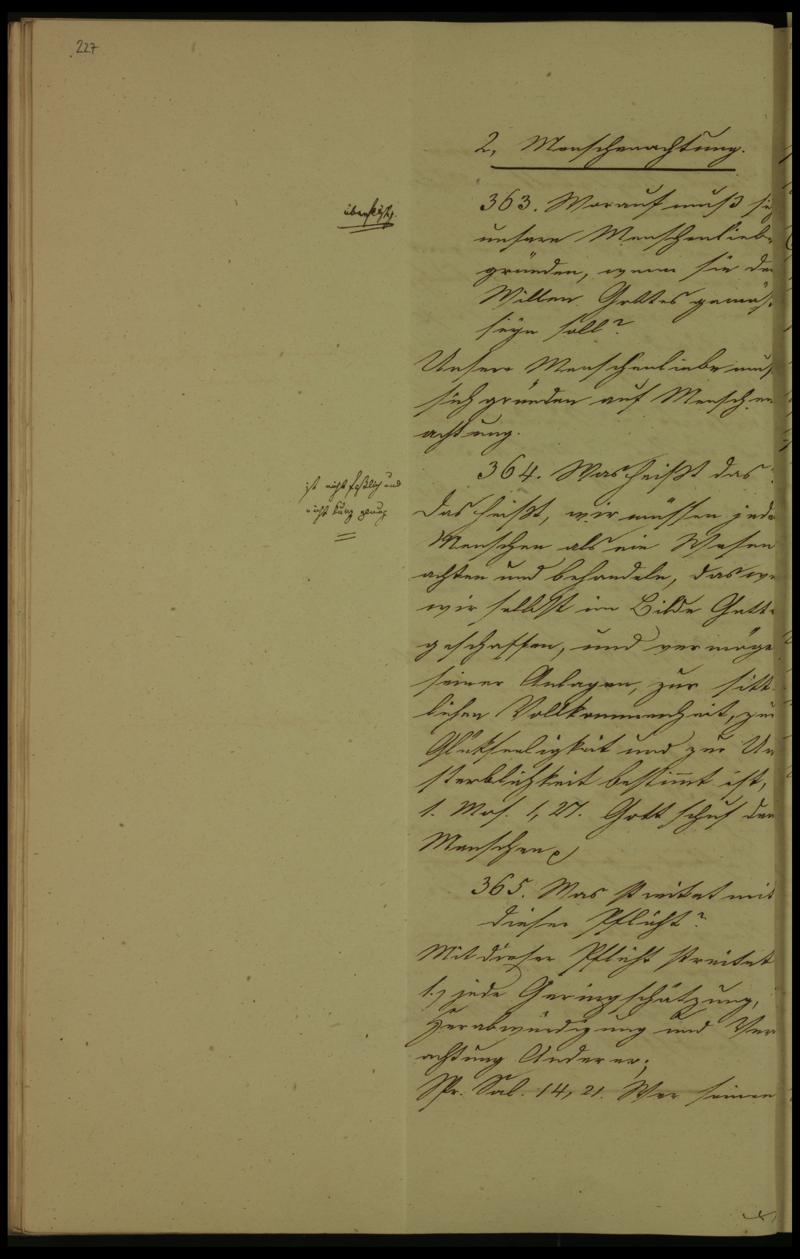 227
2, Menschenachtung.
363. Worauf muß sich
unsere Menschenliebe
gründen, wenn sie dem
Willen Gottes gemäß
seyn soll?
Unsere Menschenliebe muß
sich gründen auf Menschen
achtung.
364. Was heißt das?
Das heißt, wir müssen jeden
Menschen als ein Wesen
achten und behandeln, das wie
wir selbst im Bilde Gottes
geschaffen, und vermöge
seiner Anlagen, zur sitt
lichen Vollkommenheit, zur
Glükseeligkeit und zur Un
sterblichkeit bestimmt ist,
1. Mos. 1, 27. Gott schuf den
Menschen
365. Was streitet mit
dieser Pflicht?
Mit dieser Pflicht streitet
1., jede Geringschätzung,
Herabwürdigung und Ver
achtung Anderer;
Spr. Sal. 14, 21. Wer seinen
ist nicht faßlich und
nicht kurz genug